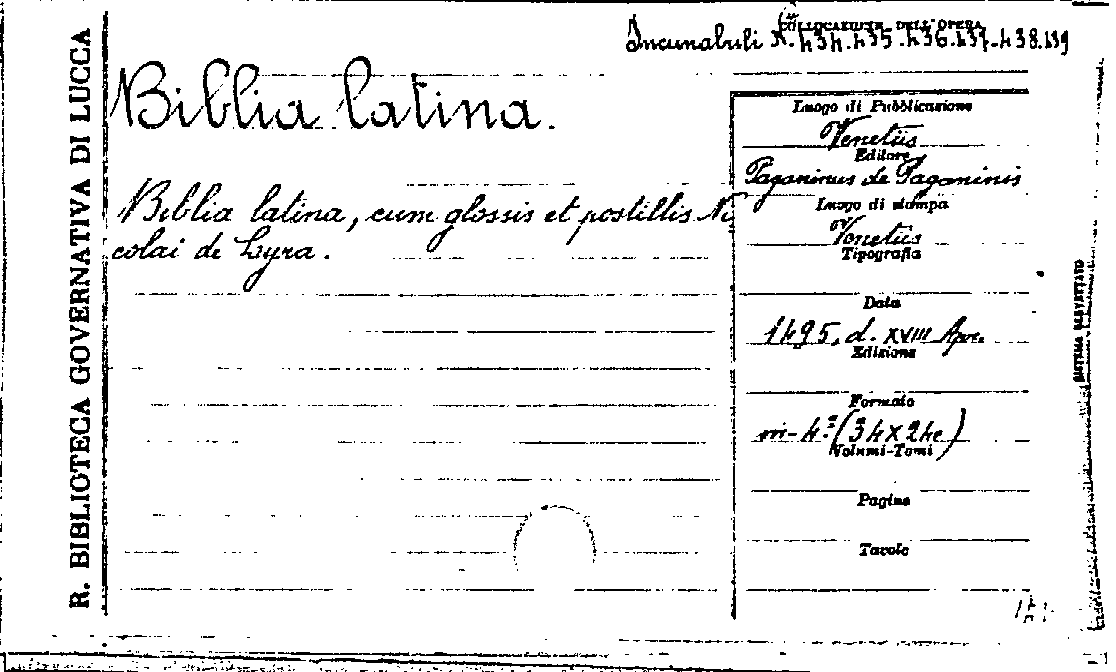 COLLOCAZIONE DELL'OPERA
Incunabuli N. 434.435.436.437-438.439
R. BIBLIOTECA GOVERNATIVA DI LUCCA
Biblia latina.
Biblia latina, cum glossis et postillis Ni
colai de Lyra.
Luogo di Pubblicazione
Venetiis
Editore
Paganinus de Paganinis
Luogo di stampa
Venetiis
Tipografia
Data
1495, d. XVIII Apr.
Edizione
Formato
in-4.° (34X24c)
Volumi-Tomi
Pagine
Tavole